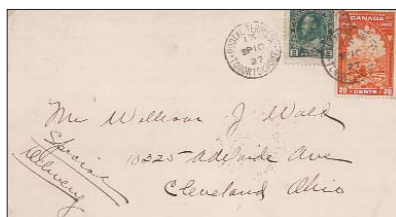 POSTAL TERMINAL
13
SP 10
27
TORONTO
CANADA
20 CENTS 20
Mr William J Wald
10325 Adelaide Ave
Cleveland Ohio
Special
Delivery